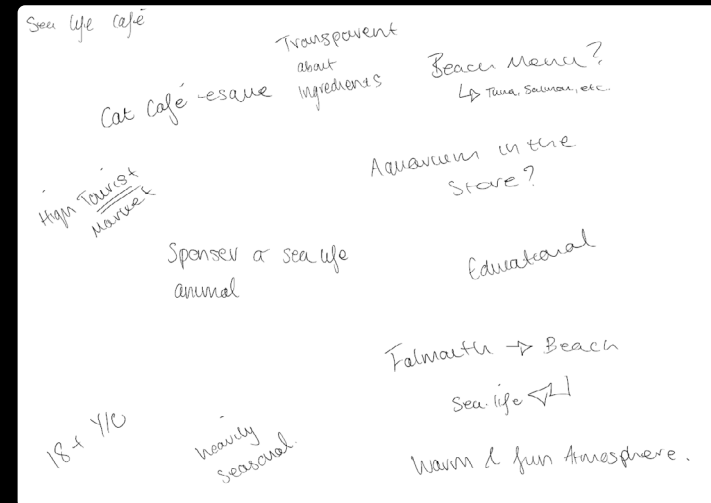 Sea life café
Transparent
about
ingredients
Beach Menu?
↳ Tuna, Salmon, etc.
Cat Café-esque
Aquarium in the
Store?
High Tourist
Market
Sponser a sea life
animal
Educational
Falmouth → Beach
Sea life
18+ Y/O
heavily
seasonal.
Warm & fun Atmosphere.